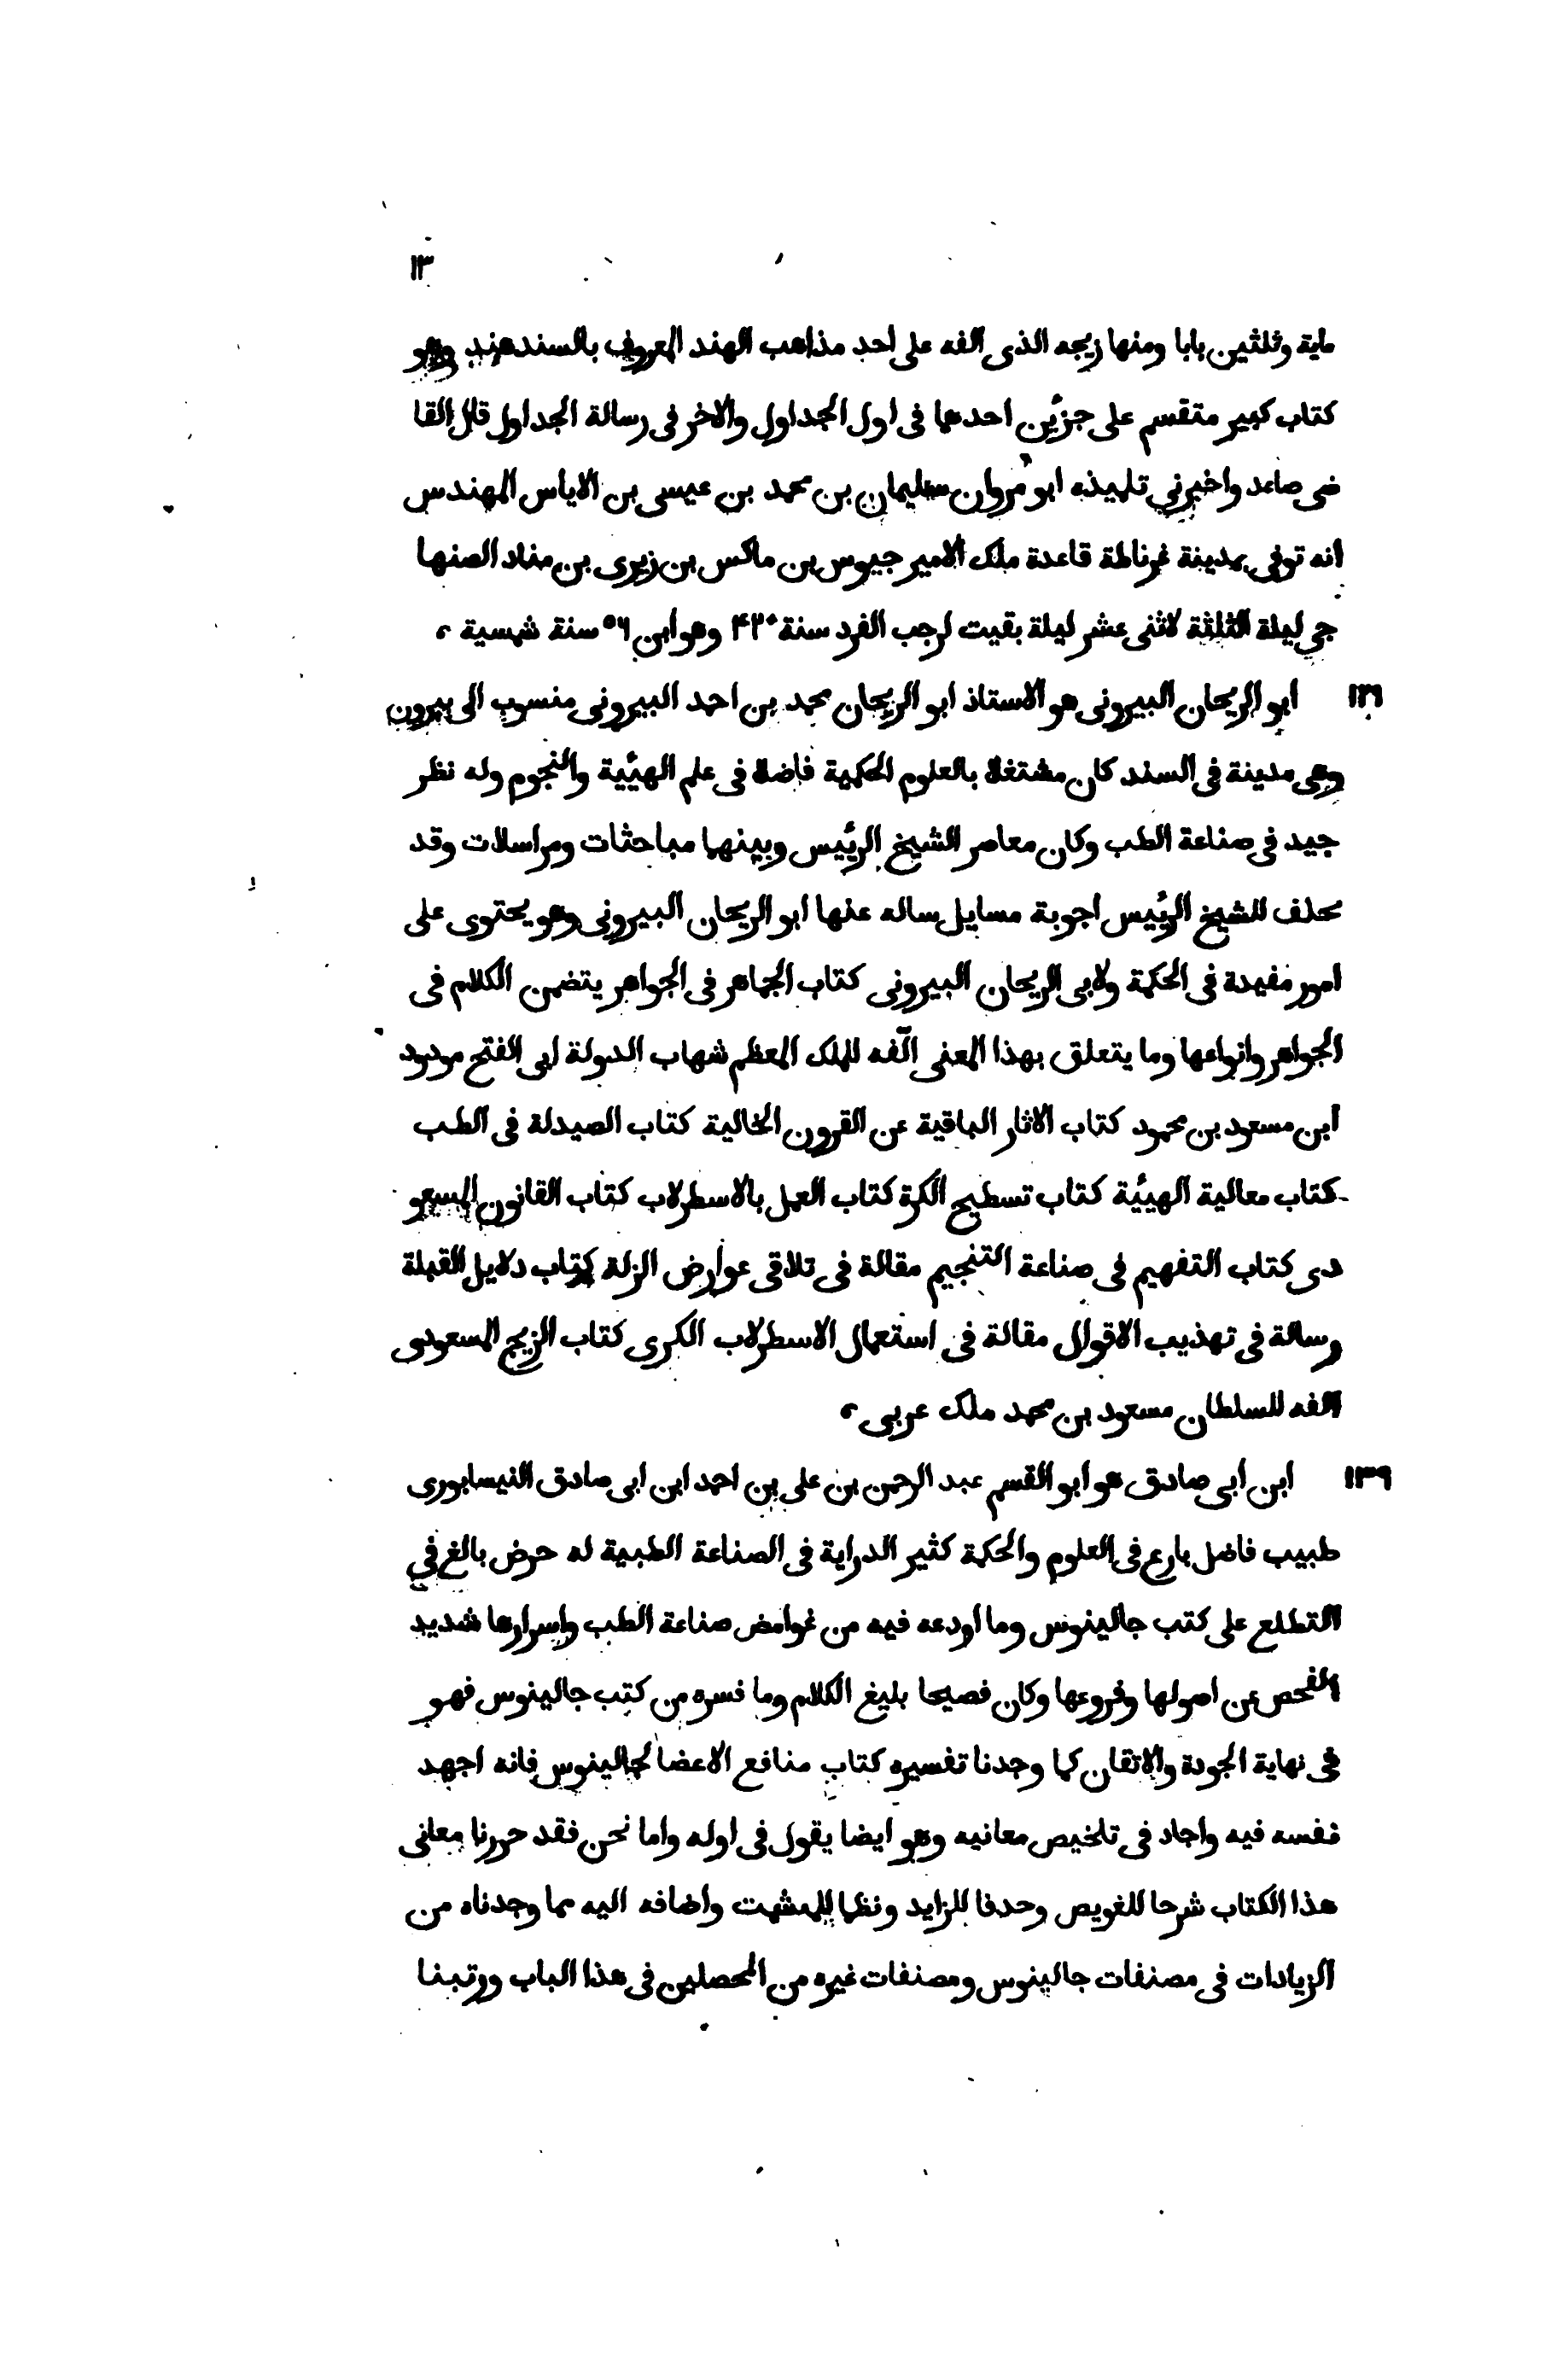 ١٣
ماية وثلثين بابا ومنها زيجه الذى الفه على احد مذاهب الهند المعروف بالسندهند وهو
كتاب كبير متقسم على جزئين احدهما فى اول الجداول والاخر فى رسالة الجداول قال القا
ضى صاعد واخبرني تلميذه ابو مروان سليمان بن محمد بن عيسى بن الاياس المهندس
انه توفى بمدينة غرناطة قاعدة ملك الامير جيوس بن ماكس بن زيرى بن مناد الصنها
جي ليلة الثلثة لاثنى عشر ليلة بقيت لرجب الفرد سنة ۴۲۰ وهو ابن ٥٦ سنة شمسية
ابو الريحان البيرونى هو الاستاذ ابو الريحان محمد بن احمد البيرونى منسوب الى بيرون
وهى مدينة فى السند كان مشتغلا بالعلوم الحكمية فاضلا فى علم الهيئية والنجوم وله نظر
جيد فى صناعة الطب وكان معاصر الشيخ الرئيس وبينهما مباحثات ومراسلات وقد
بحلف للشيخ الرئيس اجوبة مسايل ساله عنها ابو الريحان البيرونى وهو يحتوى على
امور مفيدة فى الحكمة ولابى الريحان البيرونى كتاب الجماهر فى الجواهر يتضمن الكلام فى
الجواهر وانواعها وما يتعلق بهذا المعنى الّفه للملك المعظم شهاب الدولة ابى الفتح مودود
ابن مسعود بن محمود كتاب الاثار الباقية عن القرون الخالية كتاب الصيدلة فى الطب
كتاب معالية الهيئية كتاب تسطيح الكرة كتاب العمل بالاسطرلاب كتاب القانون المسعو
دى كتاب التفهيم فى صناعة التنجيم مقالة فى تلاقى عوارض الزلة كتاب دلايل القبلة
رسالة فى تهذيب الاقوال مقالة فى استعمال الاسطرلاب الكرى كتاب الزيج المسعودى
الفه للسلطان مسعود بن محمد ملك عربى
١٣٩ ابن ابى صادق هو ابو القسم عبد الرحمن بن على بن احمد ابن ابى صادق النيسابورى
طبيب فاضل بارع فى العلوم والحكمة كثير الدراية فى الصناعة الطبية له حرض بالغ في
التطلع على كتب جالينوس وما اودعه فيه من غوامض صناعة الطب واسرارها شديد
الفحص عن اصولها وفروعها وكان فصيحا بليغ الكلام وما فسره من كتب جالينوس فهو
فى نهاية الجودة والاتقان كما وجدنا تفسيره كتاب منافع الاعضا لجالينوس فانه اجهد
نفسه فيه واجاد فى تلخيص معانيه وهو ايضا يقول فى اوله واما نحن فقد حررنا معانى
هذا الكتاب شرحا للغويص وحدفا للزايد ونظما للمشهت واضافه اليه مما وجدناه من
الزيادات فى مصنفات جالينوس ومصنفات غيره من المحصلين فى هذا الباب ورتبنا